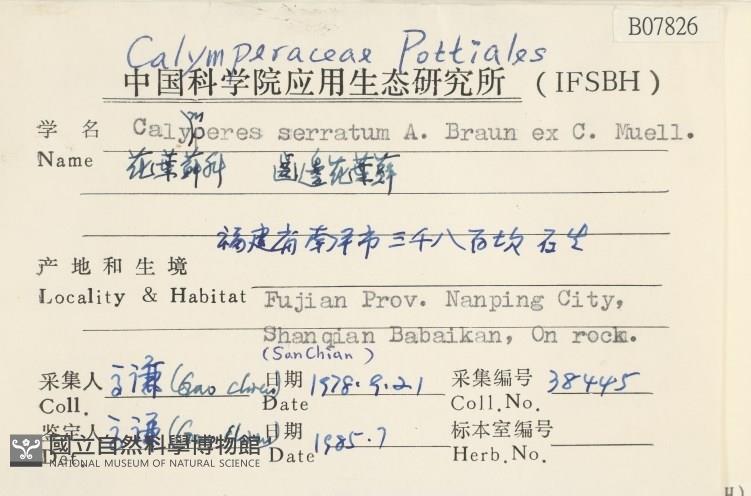 B07826
Calymperaceae Pottiales
中国科学院应用生态研究所 (IFSBH)
学名 Calymperes serratum A. Braun ex C. Muell.
Name 花葉蘚科 齒邊花葉蘚
福建省南平市三千八百坎 石生
产地和生境
Locality & Habitat Fujian Prov. Nanping City,
Shanqian Babaikan, On rock.
(SanChian)
采集人 高谦 (Gao Chien) 日期 1978.9.21 采集编号 38445
Coll. Date Coll.No.
鉴定人 高谦 日期 1985.7 标本室编号
Det. Date Herb.No.
國立自然科學博物館
NATIONAL MUSEUM OF NATURAL SCIENCE